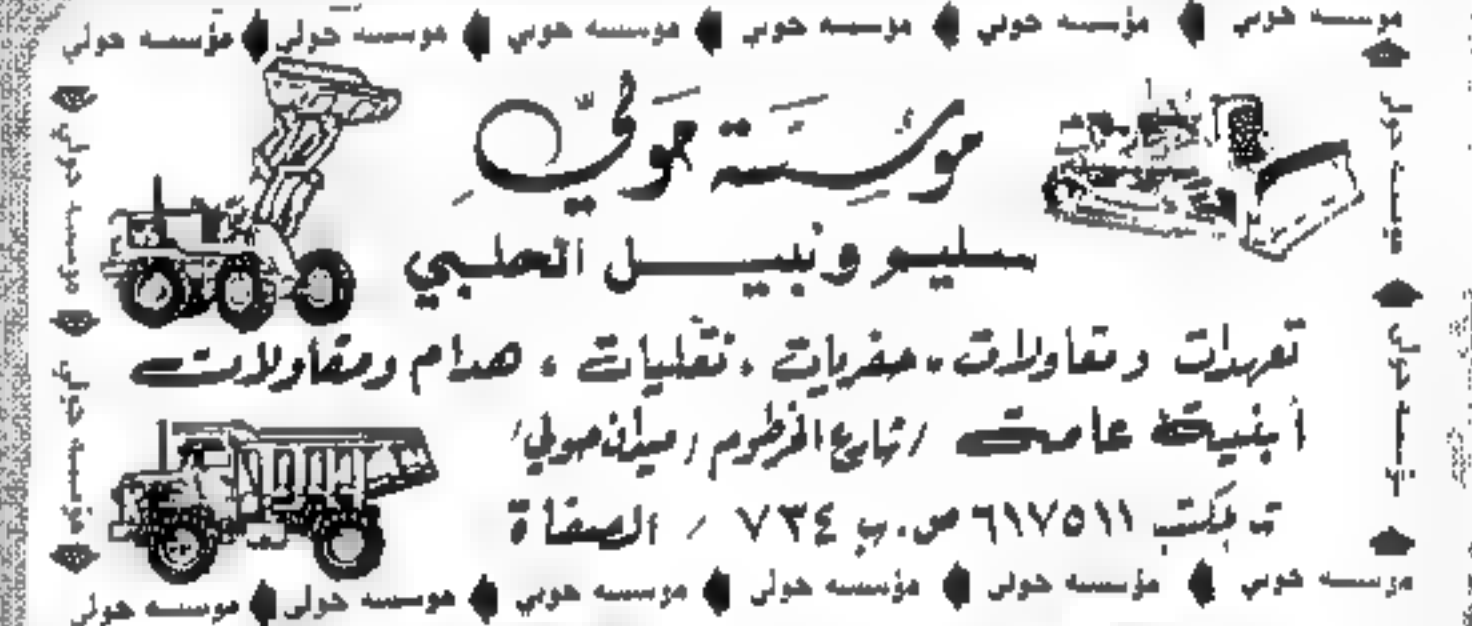 مؤسسه حولي مؤسسه حولي مؤسسه حولي مؤسسه حولي مؤسسه حولي مؤسسه حولي
مؤسسة حولي
سليم ونبيل الحلبي
تعهدات ومقاولات، حفريات، نقليات، هدام ومقاولات
أبنية عامة / شارع الخرطوم / ميدان حولي /
ت مكتب ٦١٧٥١١ ص.ب ٧٣٤ / الصفاة
مؤسسه حولي مؤسسه حولي مؤسسه حولي مؤسسه حولي مؤسسه حولي مؤسسه حولي